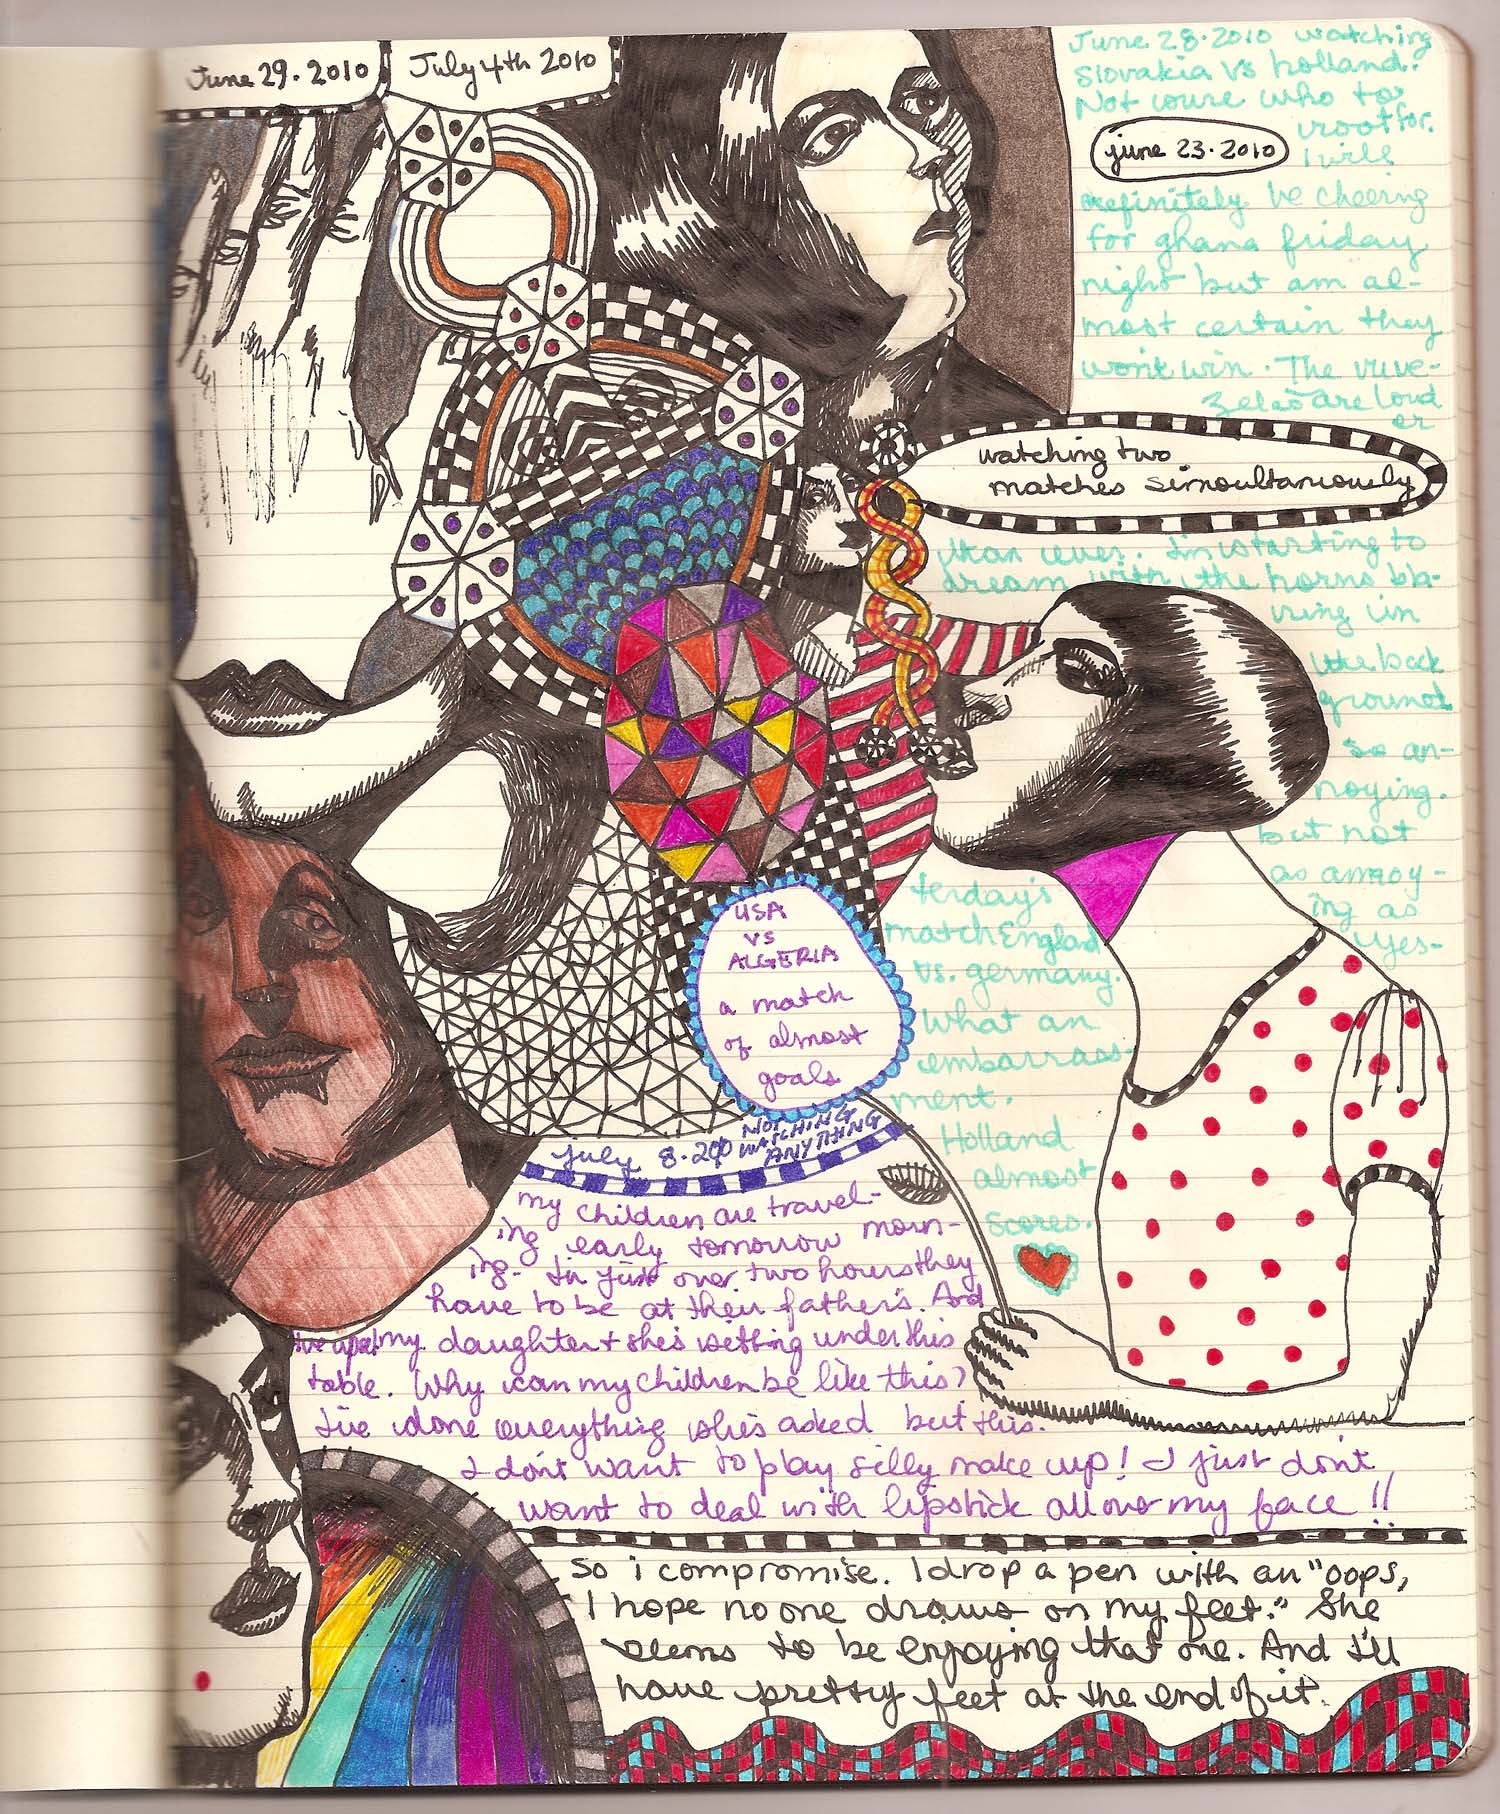 June 29.2010
July 4th 2010
June 28.2010 watching
Slovakia vs holland.
Not soure who to
root for.
june 23.2010
I will
definitely be cheering
for ghana friday
night but am al-
most certain they
won't win. The vuve-
zelas are loud
er
watching two
matches simoultaniously
than ever. I'm starting to
dream with the horns bla-
ring in
the back
ground
so an-
noying.
but not
as annoy-
ing as
yes-
terday's
match England
vs. germany.
What an
embarrass-
ment.
Holland
almost
scores.
USA
vs
ALGERIA
a match
of almost
goals
july 8.2010 NOT
WATCHING
ANYTHING
my children are travel-
ing early tomorrow morn-
ing. In just over two hours they
have to be at their father's. And
I've upset my daughter & she's sitting under this
table. Why can my children be like this?
I've done everything she's asked but this.
I don't want to play silly make up! I just don't
want to deal with lipstick all over my face!!
So i compromise. I drop a pen with an "oops,
I hope no one draws on my feet." She
seems to be enjoying that one. And I'll
have pretty feet at the end of it.